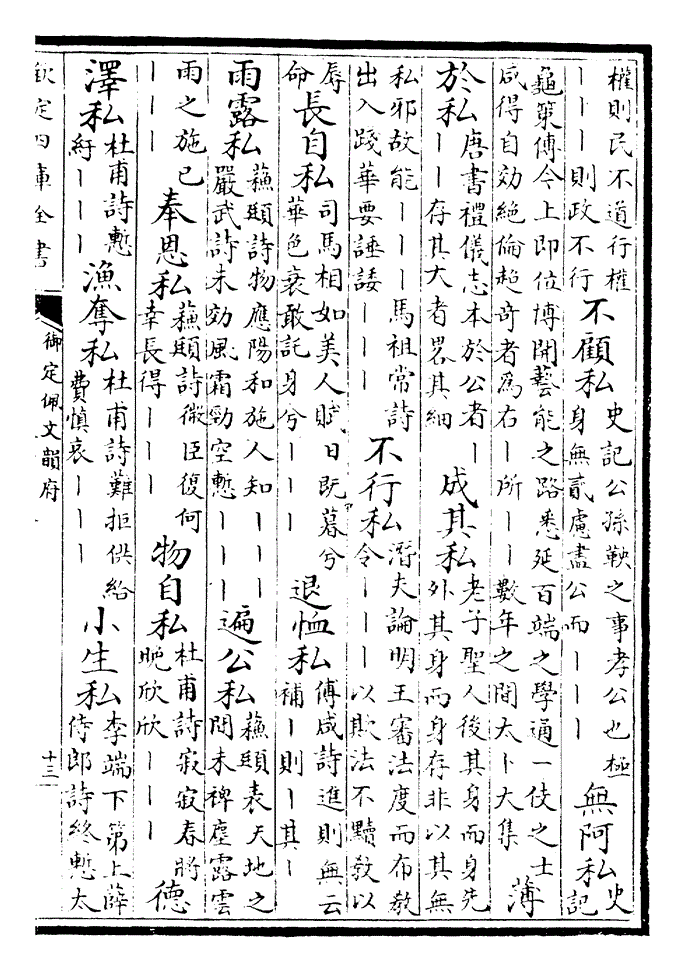 權則民不道行權丨丨丨則政不行不顧私史記公孫鞅之事孝公也極身無貳慮盡公而丨丨丨無阿私史記
龜策傳今上即位博開藝能之路悉延百端之學通一伎之士咸得自効絶倫超奇者爲右丨所丨丨數年之間太卜大集薄
於私唐書禮儀志本於公者丨丨丨存其大者畧其細成其私老子聖人後其身而身先外其身而身存非以其無
私邪故能丨丨丨馬祖常詩出入踐華要諈諉丨丨丨不行私潛夫論明王審法度而布教令丨丨丨以欺法不黷教以
辱命長自私司馬相如美人賦日既暮兮華色衰敢託身兮丨丨丨退恤私傅咸詩進則無云補丨則丨其丨
雨露私蘇頲詩物應陽和施人知丨丨丨嚴武詩未効風霜勁空慙丨丨丨遍公私蘇頲表天地之間未裨塵露雲
雨之施已丨丨丨奉恩私蘇頲詩微臣復何幸長得丨丨丨物自私杜甫詩寂寂春將晚欣欣丨丨丨德
澤私杜甫詩慙紆丨丨丨漁奪私杜甫詩難拒供給費慎哀丨丨丨小生私李端下第上薛侍郎詩終慙太
欽定四庫全書 御定佩文韻府 十三